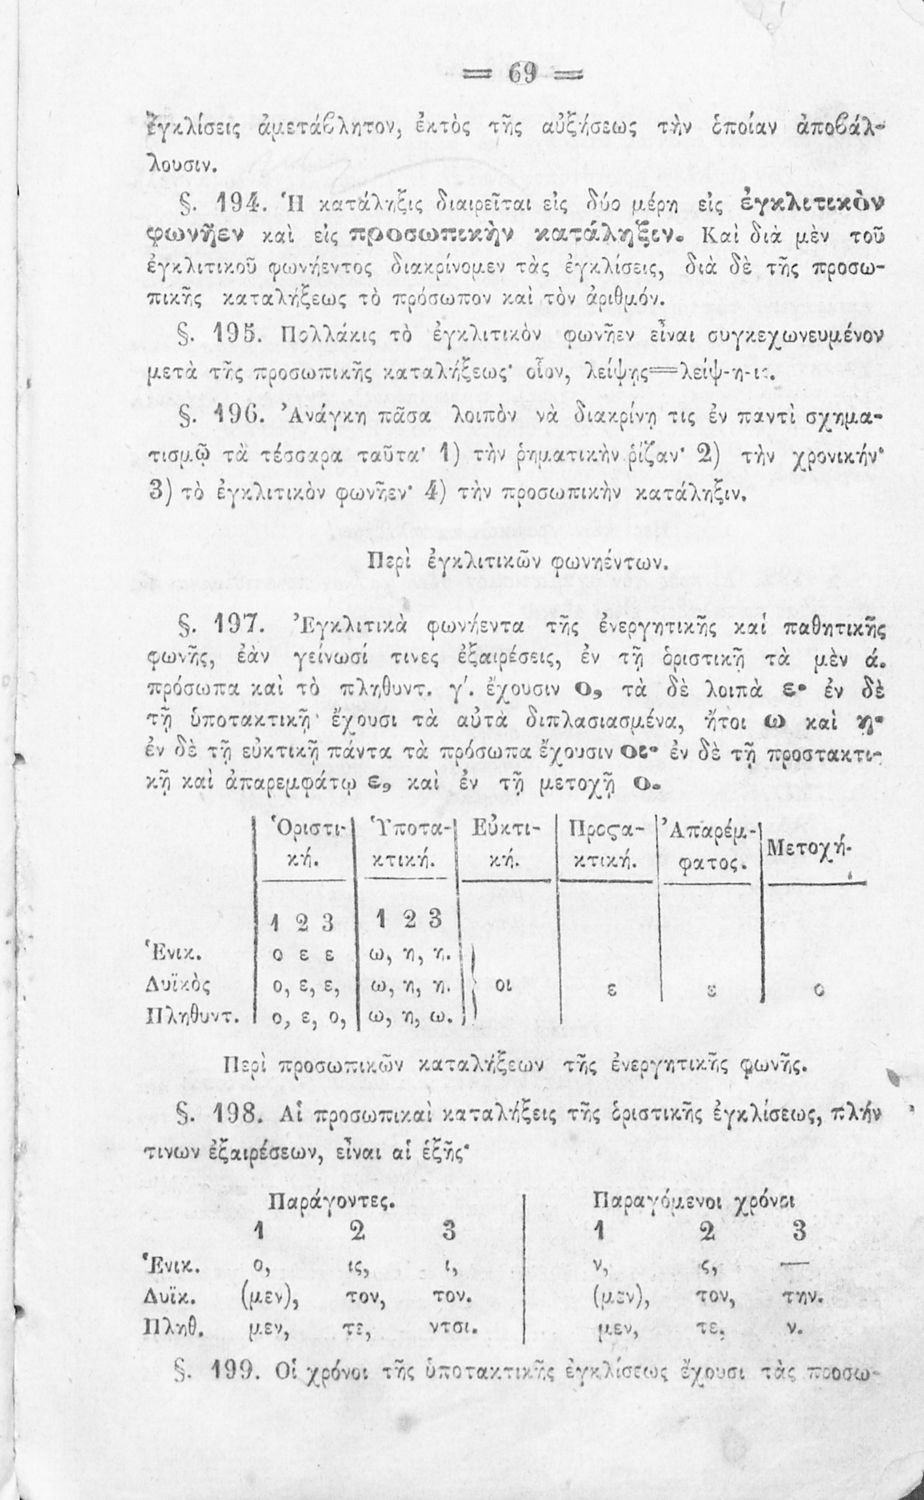 = 69 =
ἐγκλίσεις ἀμετάβλητον, ἐκτὸς τῆς αὐξήσεως τὴν ὁποίαν ἀποβάλ-
λουσιν.
§. 194. Ἡ κατάληξις διαιρεῖται εἰς δύο μέρη εἰς ἐγκλιτικὸν
φωνῆεν καὶ εἰς προσωπικὴν κατάληξιν. Καὶ διὰ μὲν τοῦ
ἐγκλιτικοῦ φωνήεντος διακρίνομεν τὰς ἐγκλίσεις, διὰ δὲ τῆς προσω-
πικῆς καταλήξεως τὸ πρόσωπον καὶ τὸν ἀριθμόν.
§. 195. Πολλάκις τὸ ἐγκλιτικὸν φωνῆεν εἶναι συγκεχωνευμένον
μετὰ τῆς προσωπικῆς καταλήξεως· οἷον, λείψῃς=λείψ-η-ις.
§. 196. Ἀνάγκη πᾶσα λοιπὸν νὰ διακρίνῃ τις ἐν παντὶ σχημα-
τισμῷ τὰ τέσσαρα ταῦτα· 1) τὴν ῥηματικὴν ῥίζαν· 2) τὴν χρονικήν·
3) τὸ ἐγκλιτικὸν φωνῆεν· 4) τὴν προσωπικὴν κατάληξιν.
Περὶ ἐγκλιτικῶν φωνηέντων.
§. 197. Ἐγκλιτικὰ φωνήεντα τῆς ἐνεργητικῆς καὶ παθητικῆς
φωνῆς, ἐὰν γείνωσί τινες ἐξαιρέσεις, ἐν τῇ ὁριστικῇ τὰ μὲν ά.
πρόσωπα καὶ τὸ πληθυντ. γ΄. ἔχουσιν ο, τὰ δὲ λοιπὰ ε· ἐν δὲ
τῇ ὑποτακτικῇ ἔχουσι τὰ αὐτὰ διπλασιασμένα, ἤτοι ω καὶ η·
ἐν δὲ τῇ εὐκτικῇ πάντα τὰ πρόσωπα ἔχουσιν οι· ἐν δὲ τῇ προστακτι-
κῇ καὶ ἀπαρεμφάτῳ ε, καὶ ἐν τῇ μετοχῇ ο.
Ὁριστι- Ὑποτα- Εὐκτι- Προςα- Ἀπαρέμ- Μετοχή.
κή. κτική. κή. κτική. φατος.
1 2 3 1 2 3
Ἑνικ. ο ε ε ω, η, η.
Δυϊκὸς ο, ε, ε, ω, η, η. οι ε ε ο
Πληθυντ. ο, ε, ο, ω, η, ω.
Περὶ προσωπικῶν καταλήξεων τῆς ἐνεργητικῆς φωνῆς.
§. 198. Αἱ προσωπικαὶ καταλήξεις τῆς ὁριστικῆς ἐγκλίσεως, πλήν
τινων ἐξαιρέσεων, εἶναι αἱ ἑξῆς·
Παράγοντες. Παραγόμενοι χρόνοι
1 2 3 1 2 3
Ἑνικ. ο, ις, ι, ν, ς, —
Δυϊκ. (μεν), τον, τον. (μεν), τον, την.
Πληθ. μεν, τε, ντσι. μεν, τε, ν.
§. 199. Οἱ χρόνοι τῆς ὑποτακτικῆς ἐγκλίσεως ἔχουσι τὰς προσω-